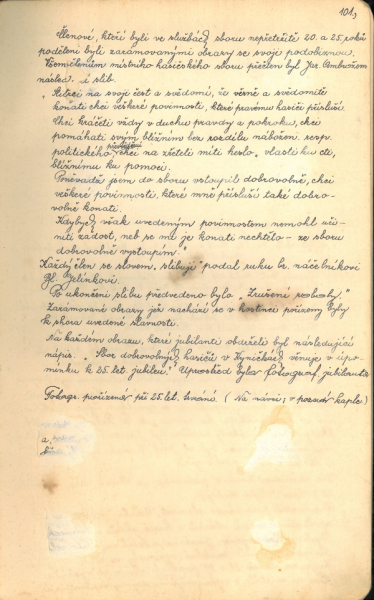 101,
Členové, kteří byli ve službách sboru nepřetržitě 20. a 25. roků
poděleni byli zarámovanými obrazy se svoje podobiznou.
Všem členům místního hasičského sboru přečten byl Jar. Ambrožem
násled. i slib.
„Slibuji na svoji čest a svědomí, že věrně a svědomitě
konati chci veškeré povinnosti, které pravému hasiči přísluší.
Chci kráčeti vždy v duchu pravdy a pokroku, chci
pomáhati svým bližním bez rozdílu nábožen. resp.
politického chci na zřeteli míti heslo „vlasti ku cti,
bližnímu ku pomoci.
Poněvadž jsem do sboru vstoupil dobrovolně, chci
veškeré povinnosti, které mně přísluší také dobro-
volně konati.
Kdybych však uvedeným povinnostem nemohl uči-
niti zadost, neb se mi je konati nechtělo – ze sboru
dobrovolně vystoupím.“
Každý člen se slovem „slibuji“ podal ruku br. náčelníkovi
Jelínkovi.
Po ukončení slibu předvedeno bylo „Zrušení roboty.“
Zarámované obrazy jež nachází se v hostinci pořízeny byly
k shora uvedené slavnosti.
Na každém obrazu, které jubilanti obdrželi byl následující
nápis: „Sbor dobrovolných hasičů v Hyničkách věnuje v upo-
mínku k 25. let. jubileu.“ Uprostřed byla fotograf. jubilanta
Fotogr. pořízená při 25. let. trvání. (Na návsi, v pozadí kaple.)
a,